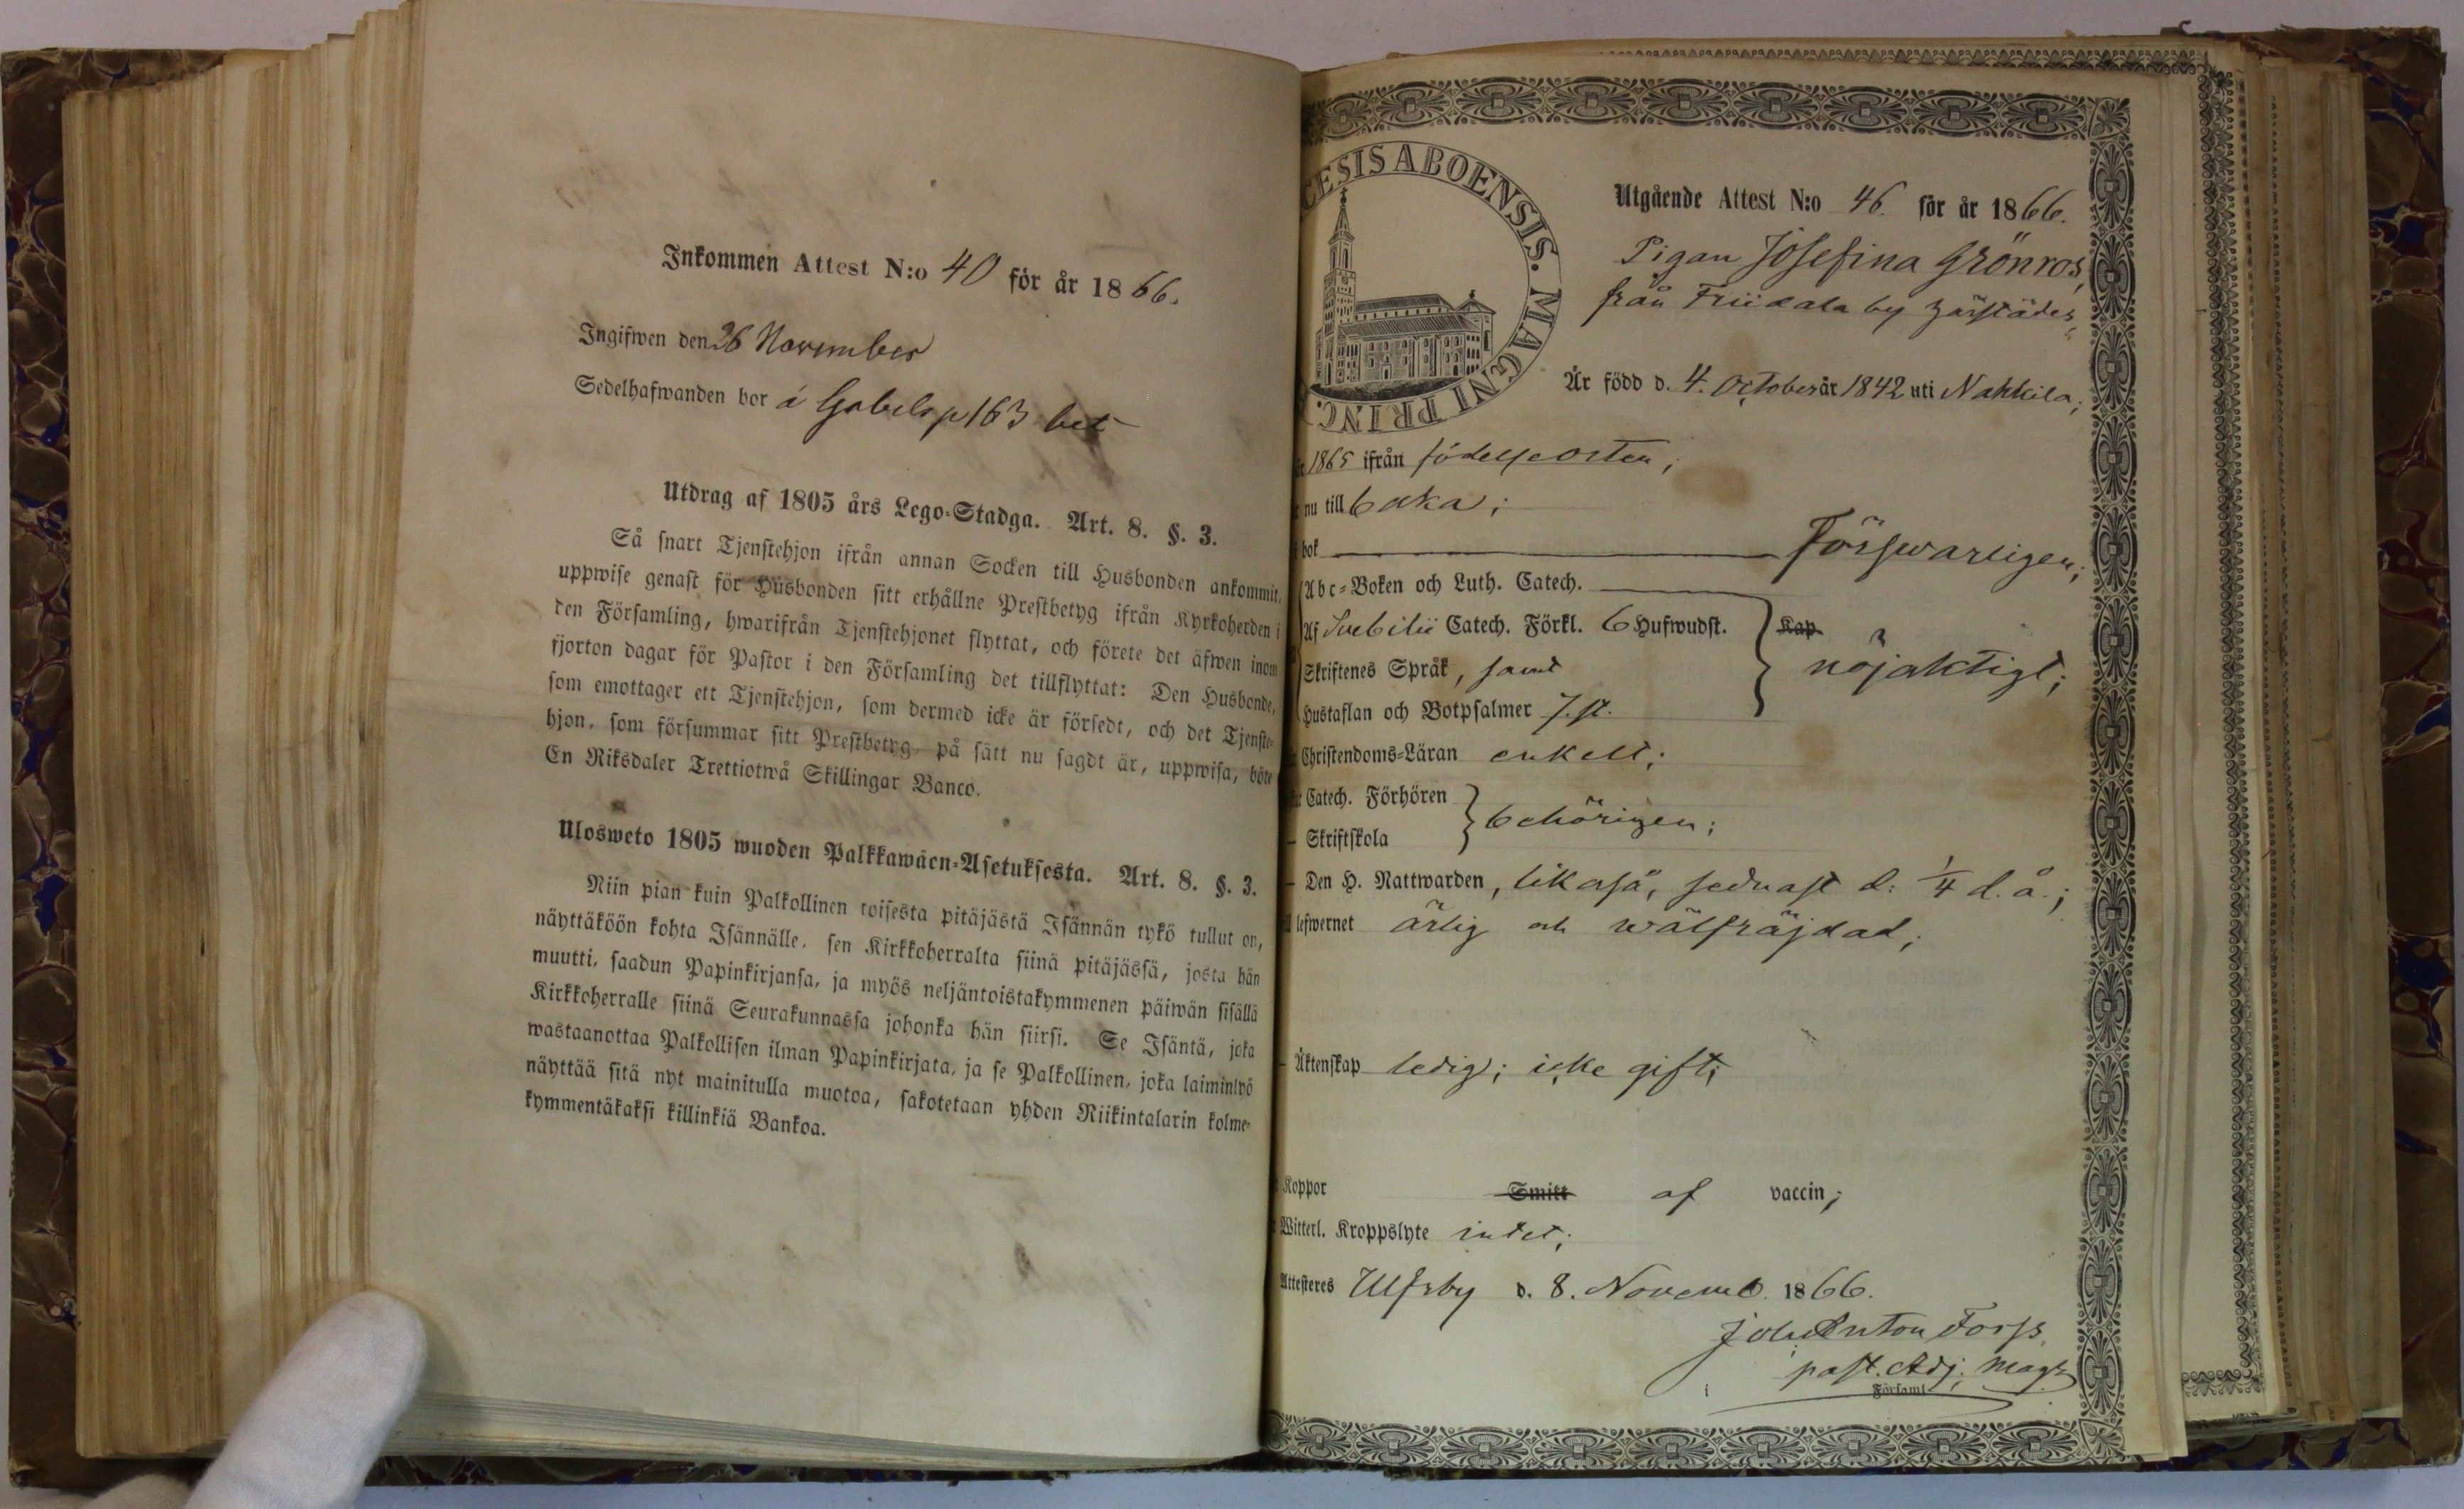 Inkommen Attest N:o 40 för år 1866.
Ingifwen den 26 November
Sedelhafwanden bor å Gabels p 163 bet
Utdrag af 1805 års Lego-Stadga. Art. 8. §. 3.
Så snart Tjenstehjon ifrån annan Socken till Husbonden ankommit,
uppwise genast för Husbonden sitt erhållne Prestbetyg ifrån Kyrkoherden i
den Församling, hwarifrån Tjenstehjonet flyttat, och förete det äfwen inom
fjorton dagar för Pastor i den Församling det tillflyttat: Den Husbonde,
som emottager ett Tjenstehjon, som dermed icke är försedt, och det Tjenste-
hjon, som försummar sitt Prestbetyg, på sätt nu sagdt är, uppwisa, böte
En Riksdaler Trettiotwå Skillingar Banco.
Ulosweto 1805 wuoden Palkkawäen-Asetuksesta. Art. 8. §. 3.
Niin pian kuin Palkollinen toisesta pitäjästä Isännän tykö tullut on,
näyttäköön kohta Isännälle, sen Kirkkoherralta siinä pitäjässä, josta hän
muutti, saadun Papinkirjansa, ja myös neljäntoistakymmenen päiwän sisällä
Kirkkoherralle siinä Seurakunnassa johonka hän siirsi. Se Isäntä, joka
wastaanottaa Palkollisen ilman Papinkirjata, ja se Palkollinen, joka laiminlyö
näyttää sitä nyt mainitulla muotoa, sakotetaan yhden Riikintalarin kolme-
kymmentäkaksi killinkiä Bankoa.
CESIS ABOENSIS. MAGNI PRINC.
Utgående Attest N:o 46. för år 1866.
Pigan Josefina Grönros,
från Friidala by härstädes,
Är född d. 4. October år 1842 uti Nakkila;
1865 ifrån födelseorten;
nu till baka;
bok Försvarligen;
Abc-Boken och Luth. Catech.
Af Svebilii Catech. Förkl. 6 Hufwudst. Kap
Skriftenes Språk, samt nöjaktigt;
Hustaflan och Botpsalmer 7. st.
Christendoms-Läran enkelt;
Catech. Förhören
Skriftskola behörigen;
Den H. Nattwarden, likaså, sednast d. 1/4 d. å.;
lefwernet ärlig och wälfräjdad;
Äktenskap ledig; icke gift;
Koppor Smitt af vaccin;
Witterl. Kroppslyte intet;
Attesteres Ulfsby d. 8. Novemb. 1866.
Joh. Anton Forss
past. Adj. Mag.
i Församl.